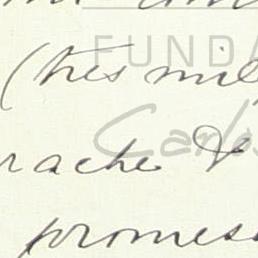 FUNDA
(tres mil
Carlos
rache &
promes